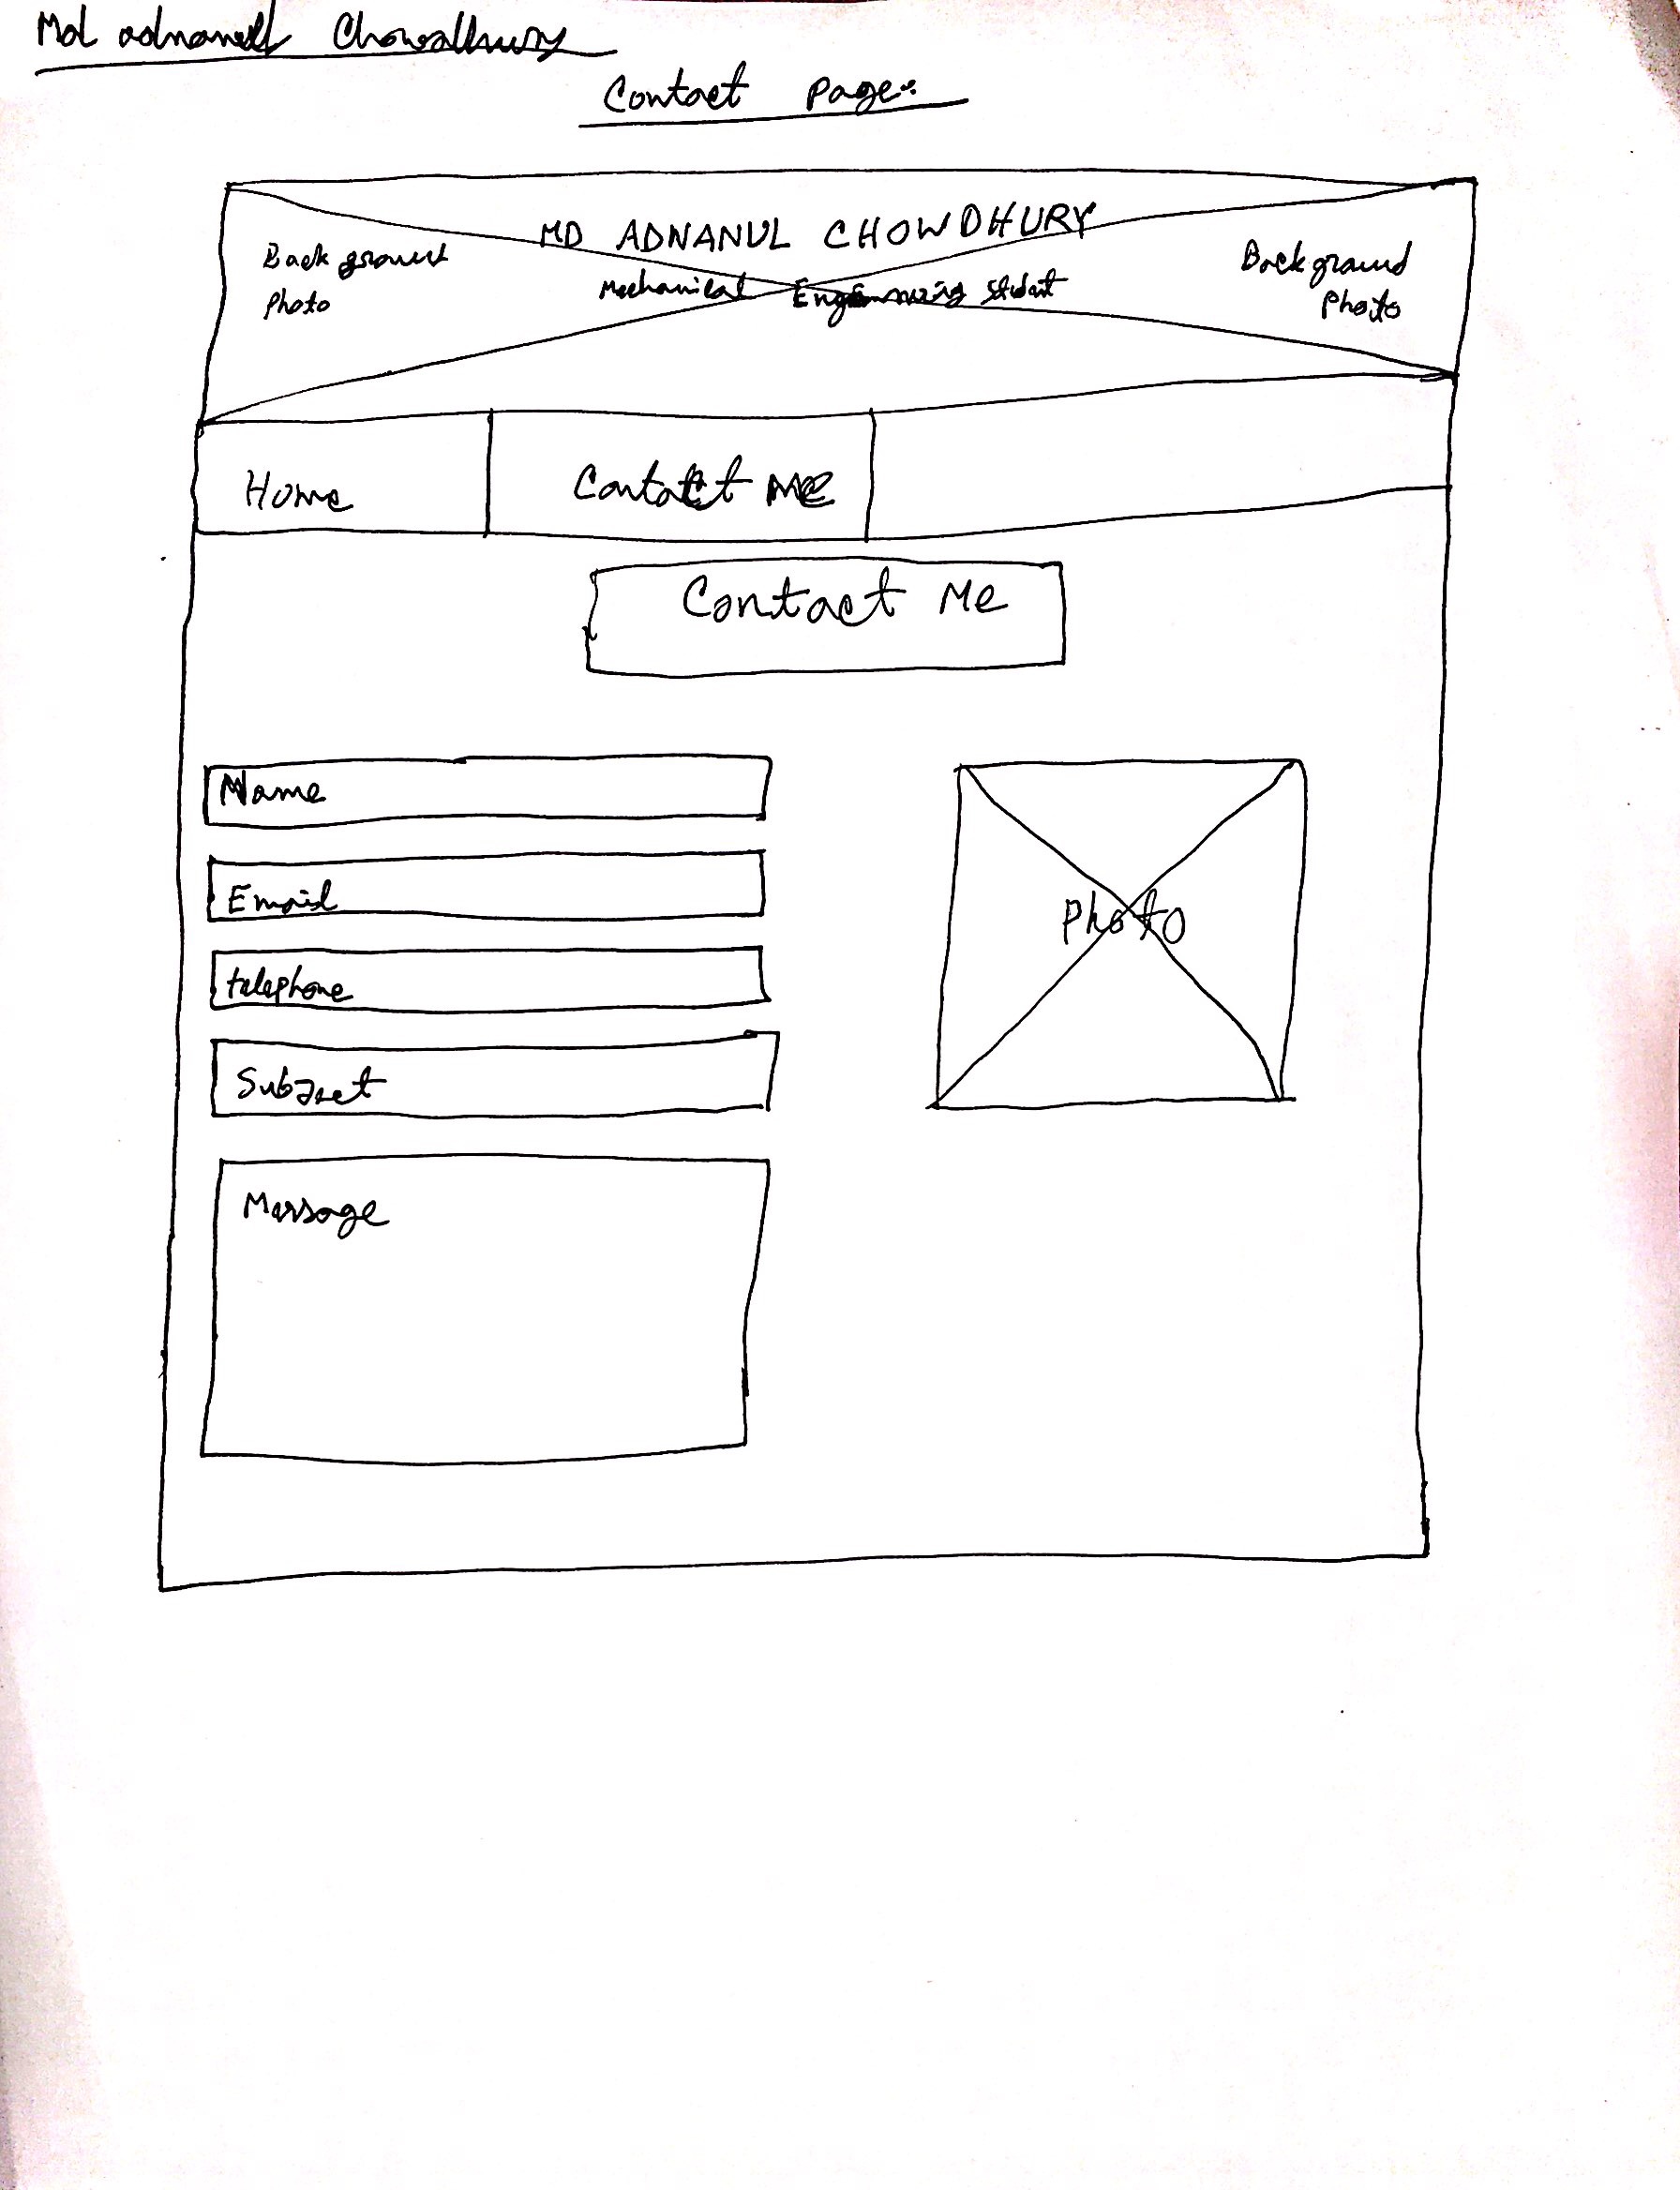 Md adnanul Chowdhury
Contact Page:
MD ADNANUL CHOWDHURY
Background Photo
Mechanical Engineering Student
Background Photo
Home
Contact Me
Contact Me
Name
Email
telephone
Subject
Message
Photo